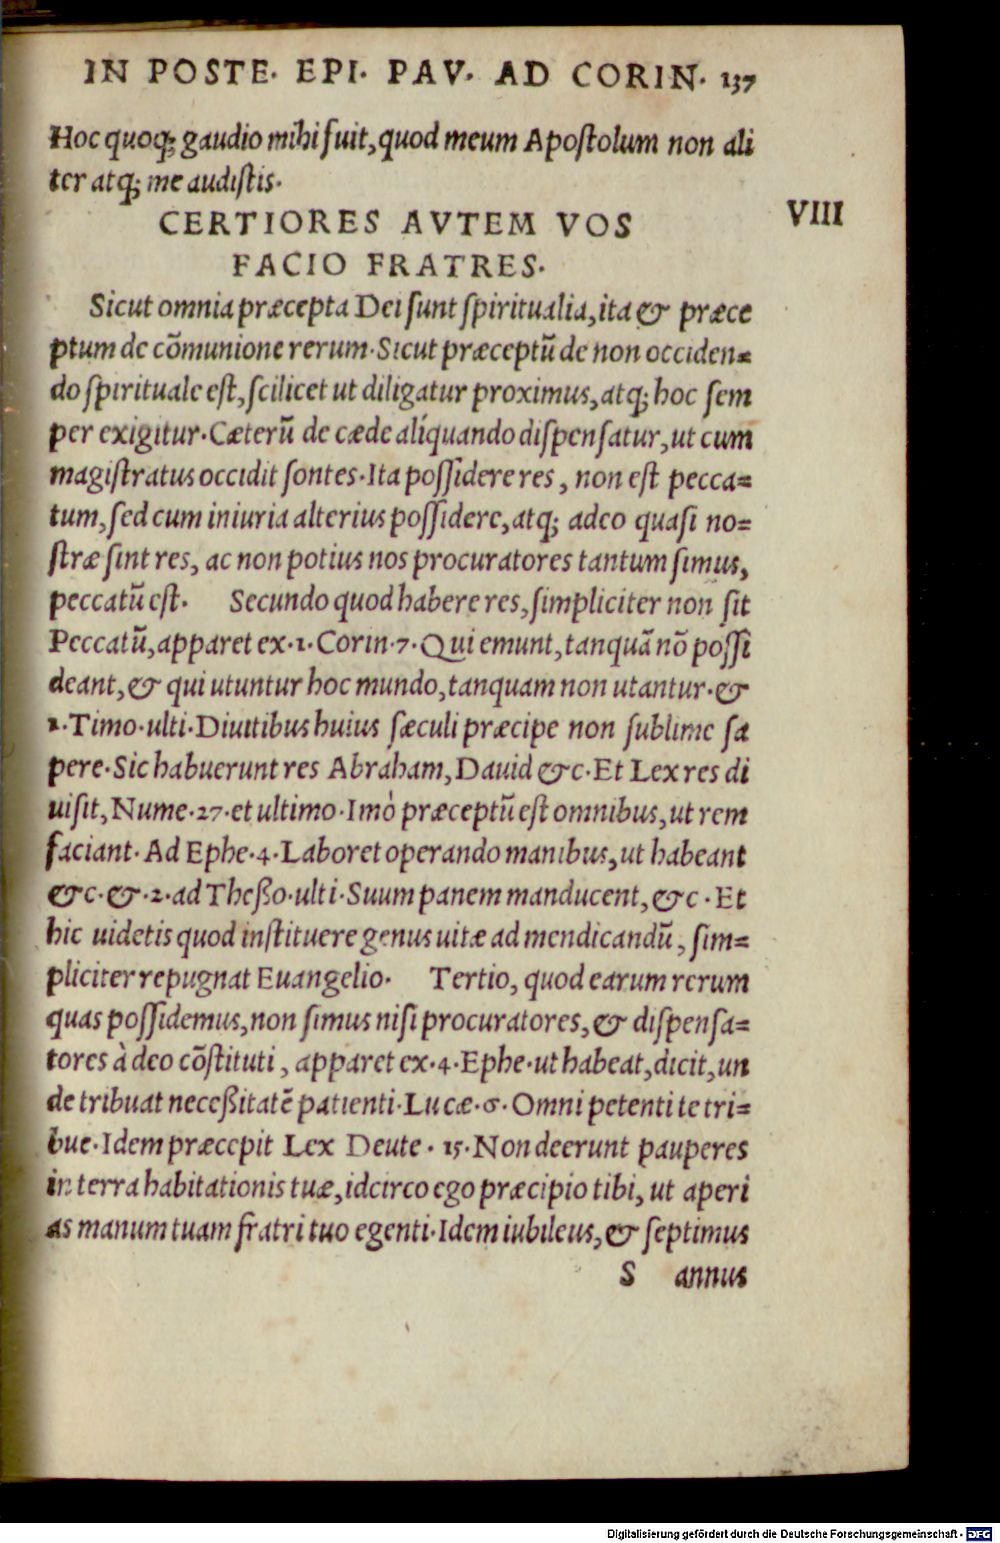 IN POSTE. EPI. PAV. AD CORIN. 137
Hoc quoq; gaudio mihi fuit, quod meum Apostolum non ali
ter atq; me audistis.
CERTIORES AVTEM VOS
FACIO FRATRES.
VIII
Sicut omnia præcepta Dei sunt spiritualia, ita & præce
ptum de cõmunione rerum. Sicut præceptũ de non occiden=
do spirituale est, scilicet ut diligatur proximus, atq; hoc sem
per exigitur. Cæterũ de cæde alíquando dispensatur, ut cum
magistratus occidit sontes. Ita possidere res, non est pecca=
tum, sed cum iniuria alterius possidere, atq; adeo quasi no=
stræ sint res, ac non potius nos procuratores tantum simus,
peccatũ est. Secundo quod habere res, simpliciter non sit
Peccatũ, apparet ex. 1. Corin. 7. Qui emunt, tanquã nõ possi
deant, & qui utuntur hoc mundo, tanquam non utantur. &
1. Timo. ulti. Diuitibus huius sæculi præcipe non sublime sa
pere. Sic habuerunt res Abraham, Dauid &c. Et Lex res di
uisit, Nume. 27. et ultimo. Imò præceptũ est omnibus, ut rem
faciant. Ad Ephe. 4. Laboret operando manibus, ut habeant
&c. &. 2. ad Theßo. ulti. Suum panem manducent, &c. Et
hic uidetis quod instituere genus uitæ ad mendicandũ, sim=
pliciter repugnat Euangelio. Tertio, quod earum rerum
quas possidemus, non simus nisi procuratores, & dispensa=
tores à deo cõstituti, apparet ex. 4. Ephe. ut habeat, dicit, un
de tribuat neceßitatẽ patienti. Lucæ. 6. Omni petenti te tri=
bue. Idem præcepit Lex Deute. 15. Non deerunt pauperes
in terra habitationis tuæ, idcirco ego præcipio tibi, ut aperi
as manum tuam fratri tuo egenti. Idem iubileus, & septimus
S annus
Digitalisierung gefördert durch die Deutsche Forschungsgemeinschaft - DFG